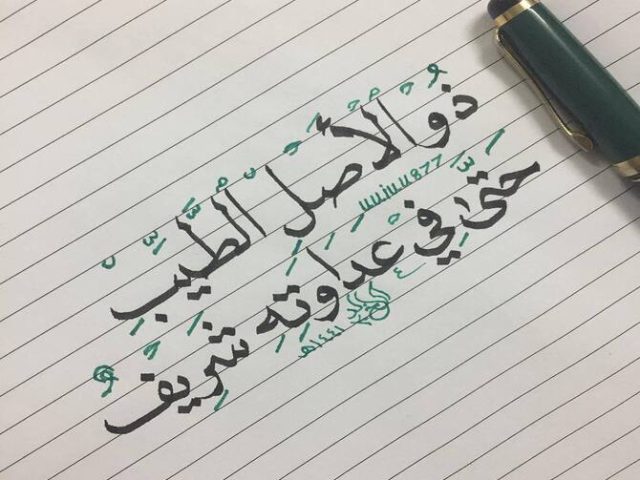 ذو الأصل الطيب
حتى في عداوته شريف
١٤٤١هـ